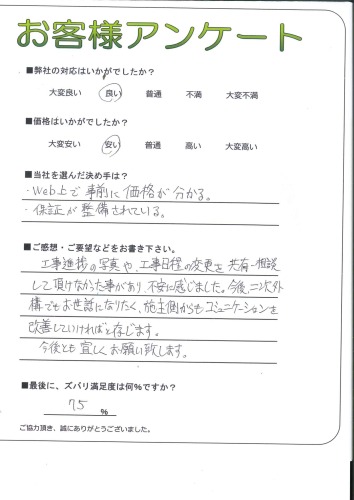 お客様アンケート
■弊社の対応はいかがでしたか？
大変良い 良い 普通 不満 大変不満
■価格はいかがでしたか？
大変安い 安い 普通 高い 大変高い
■当社を選んだ決め手は？
・Web上で事前に価格が分かる。
・保証が整備されている。
■ご感想・ご要望などをお書き下さい。
工事進捗の写真や、工事日程の変更を共有・相談
して頂けなかった事があり、不安に感じました。今後、二次外
構でもお世話になりたく、施主側からもコミュニケーションを
改善していければと存じます。
今後とも宜しくお願い致します。
■最後に、ズバリ満足度は何%ですか？
75 %
ご協力頂き、誠にありがとうございました。